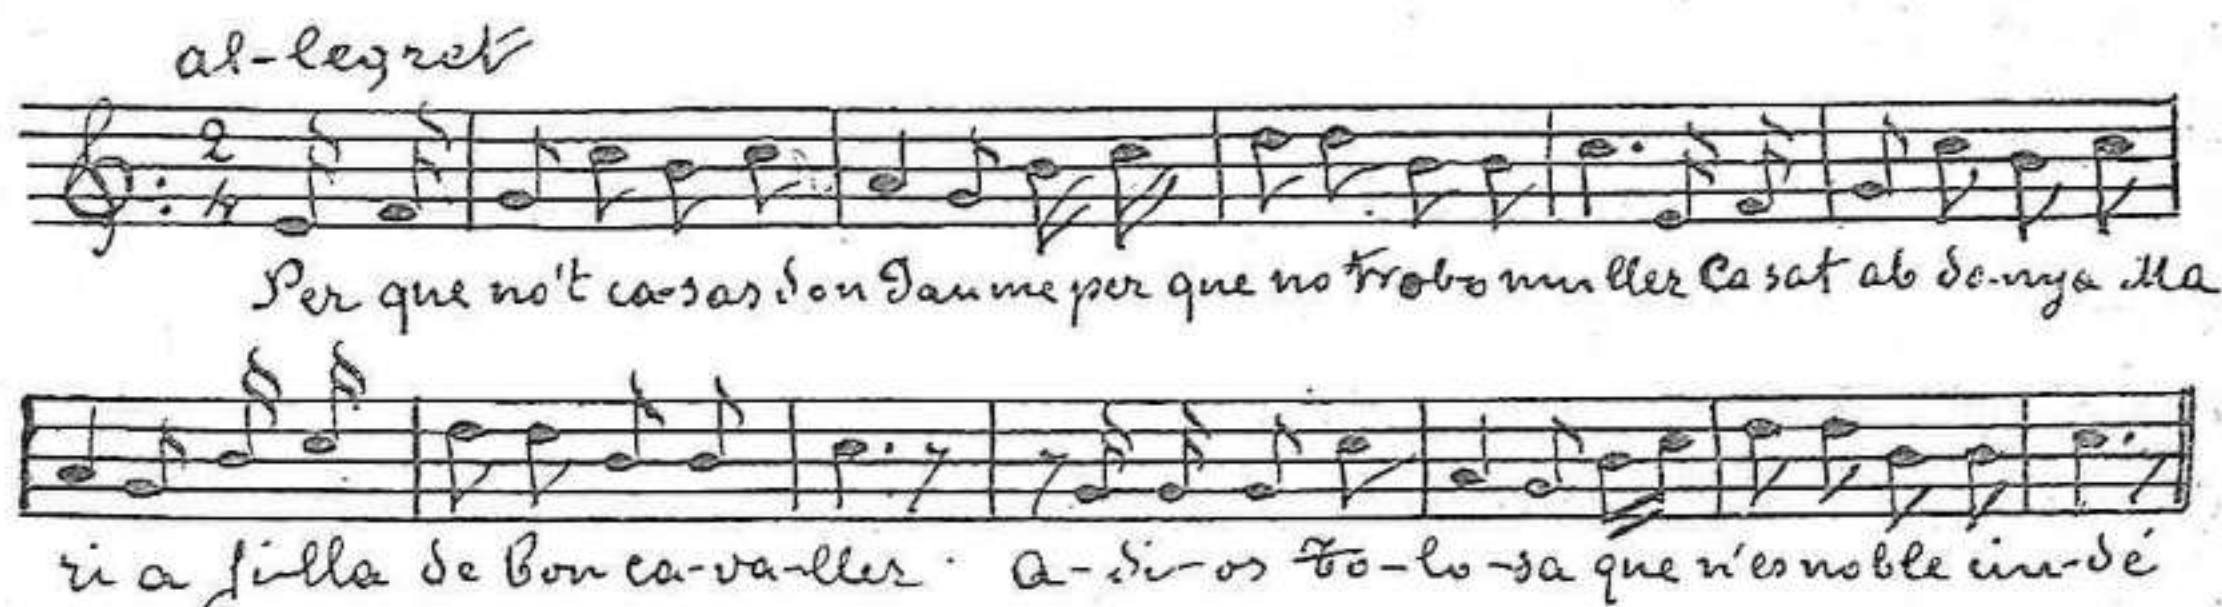 al-legret
2
4
Per que no't ca-sas don Jaume per que no trobo muller Ca sat ab do-nya Ma
ri a filla de bon ca-va-ller. A-di-os To-lo-sa que n'es noble ciu-dé